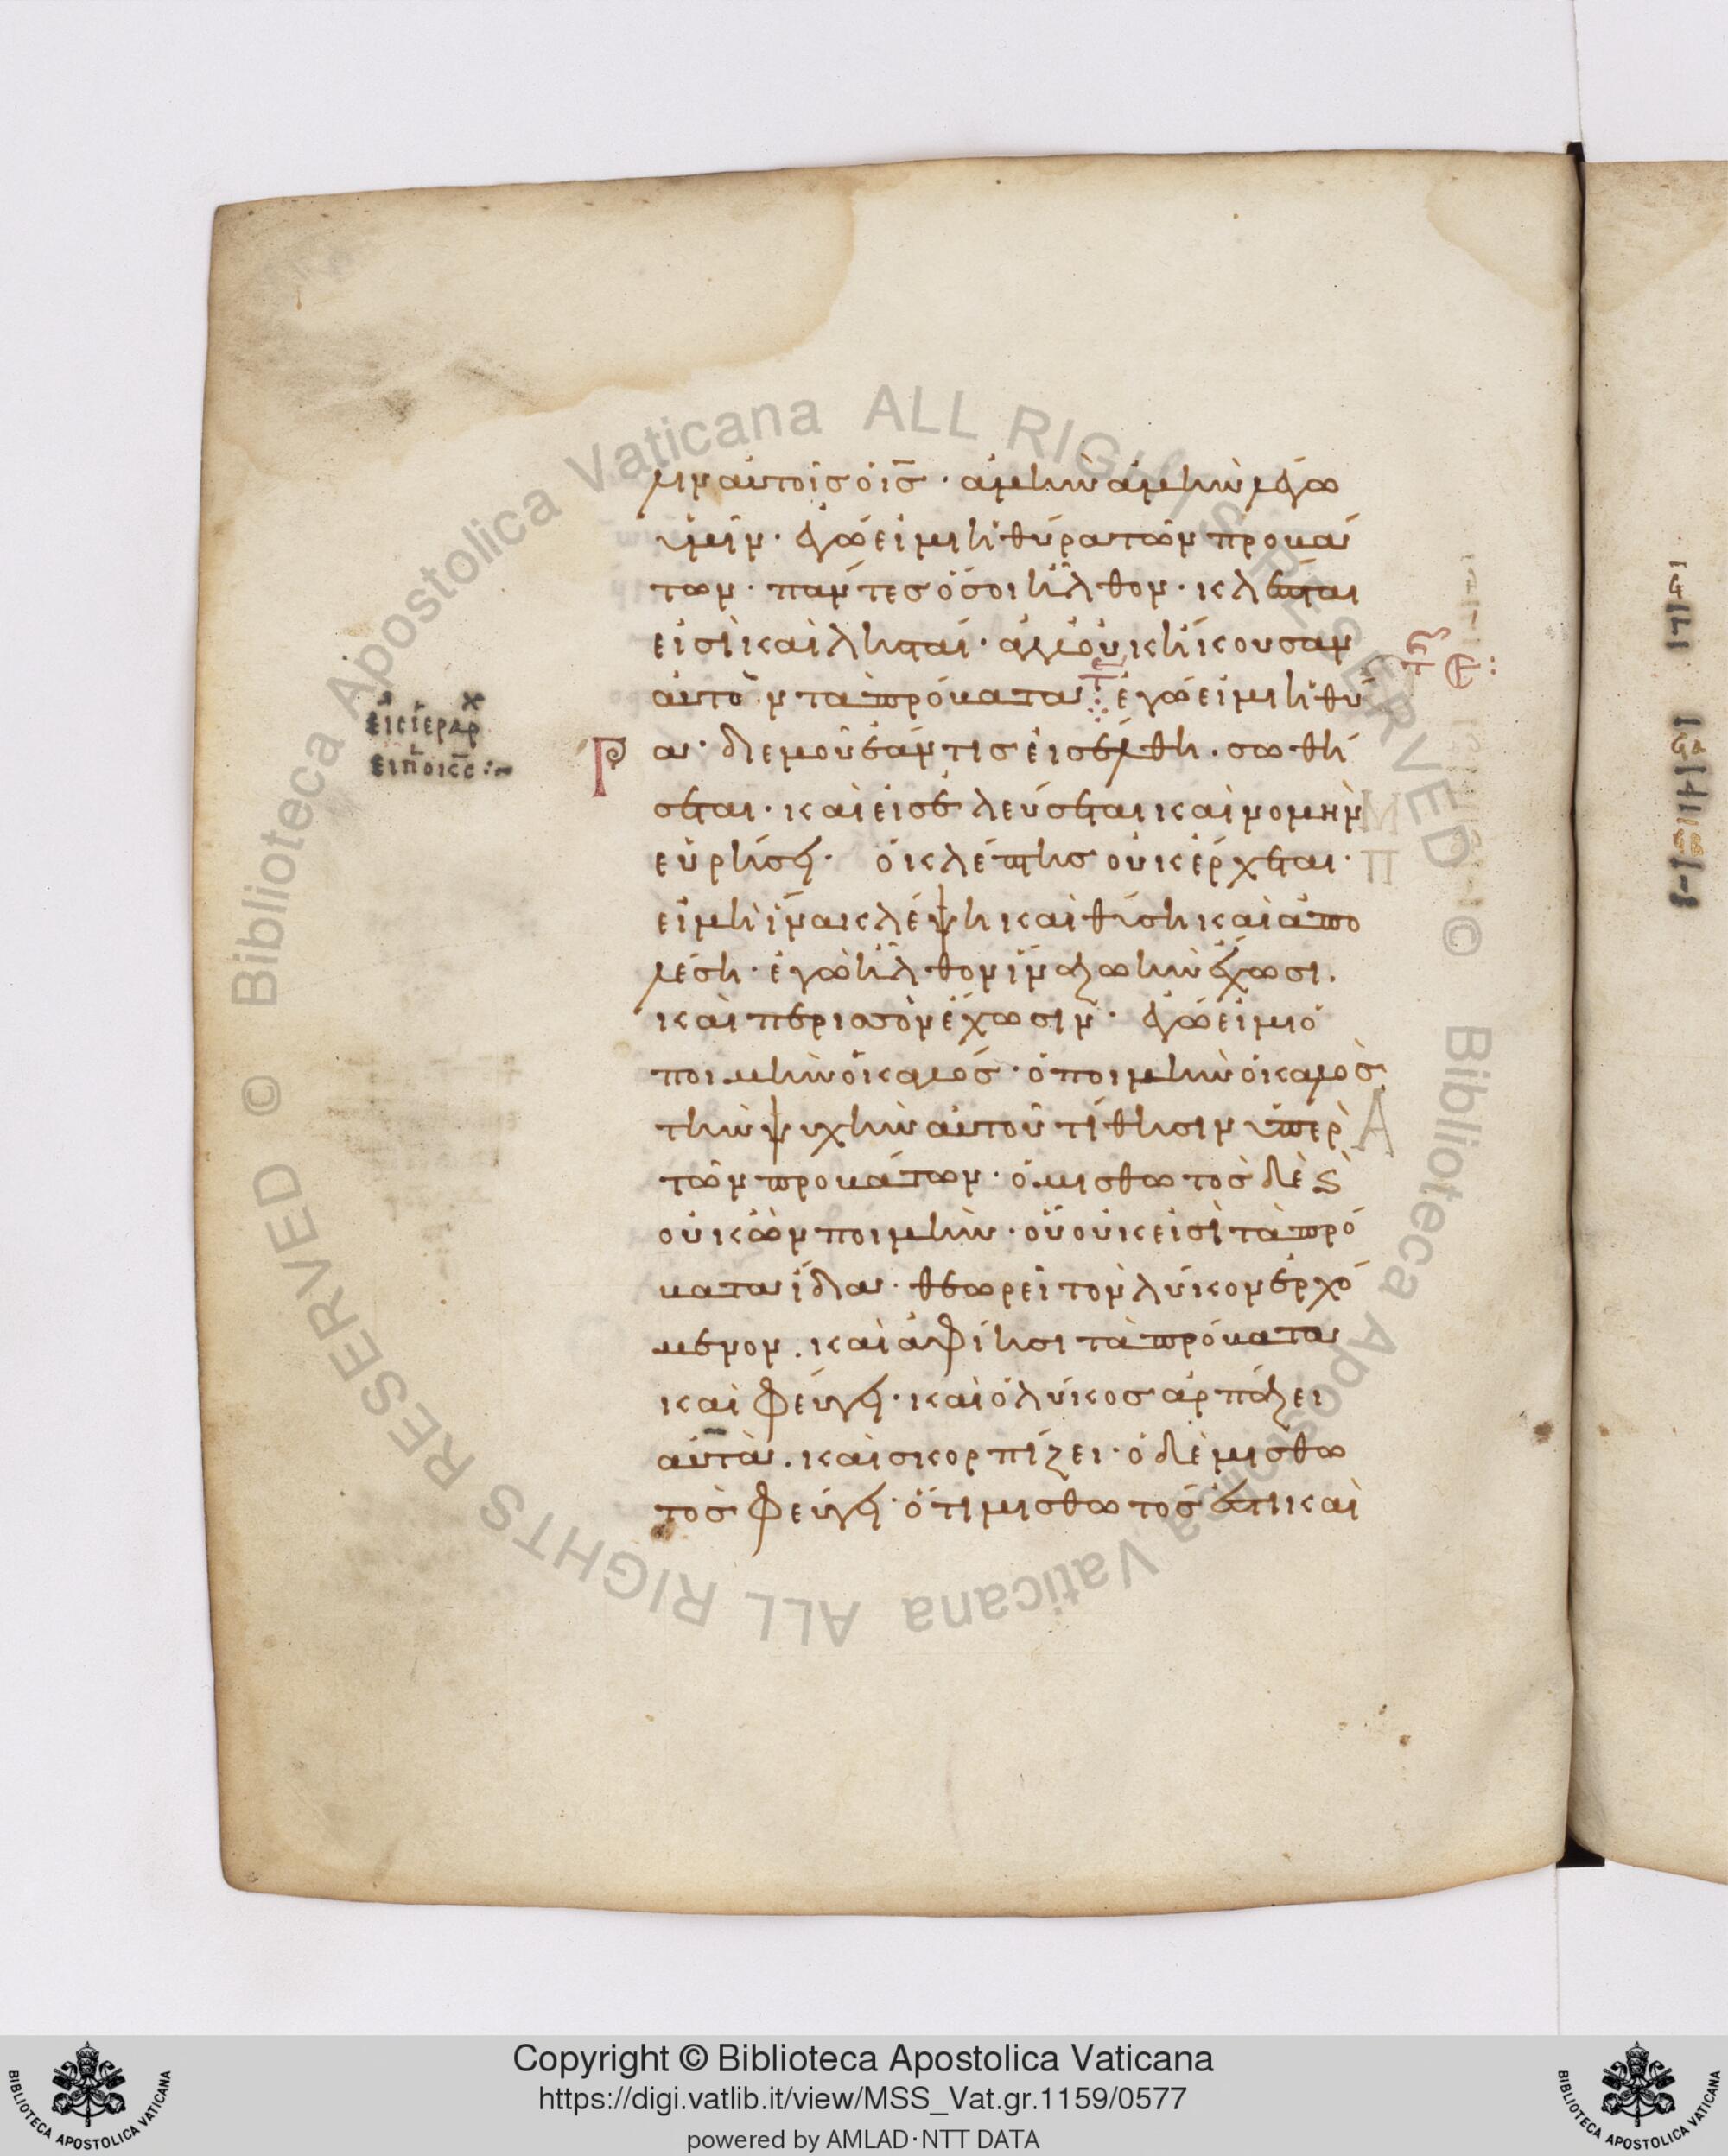 λιν αὐτοῖς ὁ ις̅ · ἀμὴν ἀμὴν λέγω
ὑμῖν · ἐγώ εἰμι ἡ θύρα τῶν προβά
των · πάντες ὅσοι ἦλθον · κλέπται
εἰσὶ καὶ λησταί · ἀλλ' οὐκ ἤκουσαν
αὐτῶν τὰ πρόβατα · ἐγώ εἰμι ἡ θύ
ρ α · δι ἐμοῦ ἐάν τις εἰσέλθη · σωθή
σεται · καὶ εἰσελεύσεται καὶ νομὴν
εὑρήσει · ὁ κλέπτης οὐκ ἔρχεται ·
εἰ μὴ ἵνα κλέψη καὶ θύση καὶ ἀπο
λέση · ἐγὼ ἦλθον ἵνα ζωὴν ἔχωσι ·
καὶ περισσὸν ἔχωσιν · ἐγώ εἰμι ὁ
ποιμὴν ὁ καλός · ὁ ποιμὴν ὁ καλὸς
τὴν ψυχὴν αὐτοῦ τίθησιν ὑπὲρ
τῶν προβάτων · ὁ μισθωτὸς δὲ ϗ
οὐκ ὢν ποιμήν · οὗ οὐκ εἰσὶ τὰ πρό
βατα ἴδια · θεωρεῖ τὸν λύκον ἐρχό
μενον · καὶ ἀφίησι τὰ πρόβατα
καὶ φεύγει · καὶ ὁ λύκος ἁρπάζει
αὐτὰ · καὶ σκορπίζει · ὁ δὲ μισθω
τὸς φεύγει · ὅτι μισθωτός ἐστι καὶ
Biblioteca Apostolica Vaticana ALL RIGHTS RESERVED ©
Biblioteca Apostolica Vaticana ALL RIGHTS RESERVED ©
Copyright © Biblioteca Apostolica Vaticana
https://digi.vatlib.it/view/MSS_Vat.gr.1159/0577
powered by AMLAD·NTT DATA
BIBLIOTECA APOSTOLICA VATICANA
BIBLIOTECA APOSTOLICA VATICANA